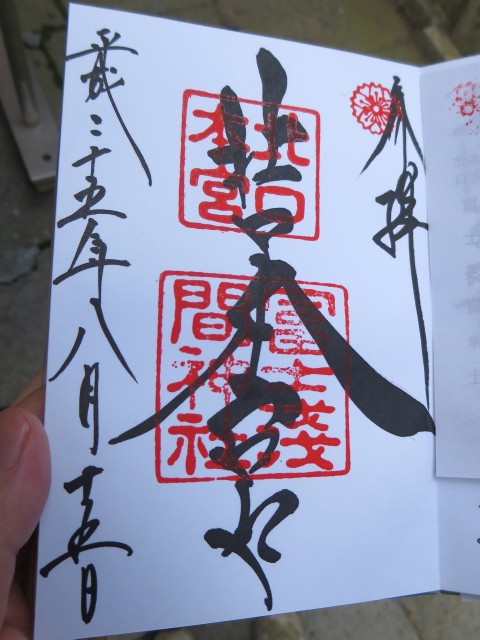 奉拝
北口本宮
北口本宮
冨士浅間神社
平成二十五年八月十五日